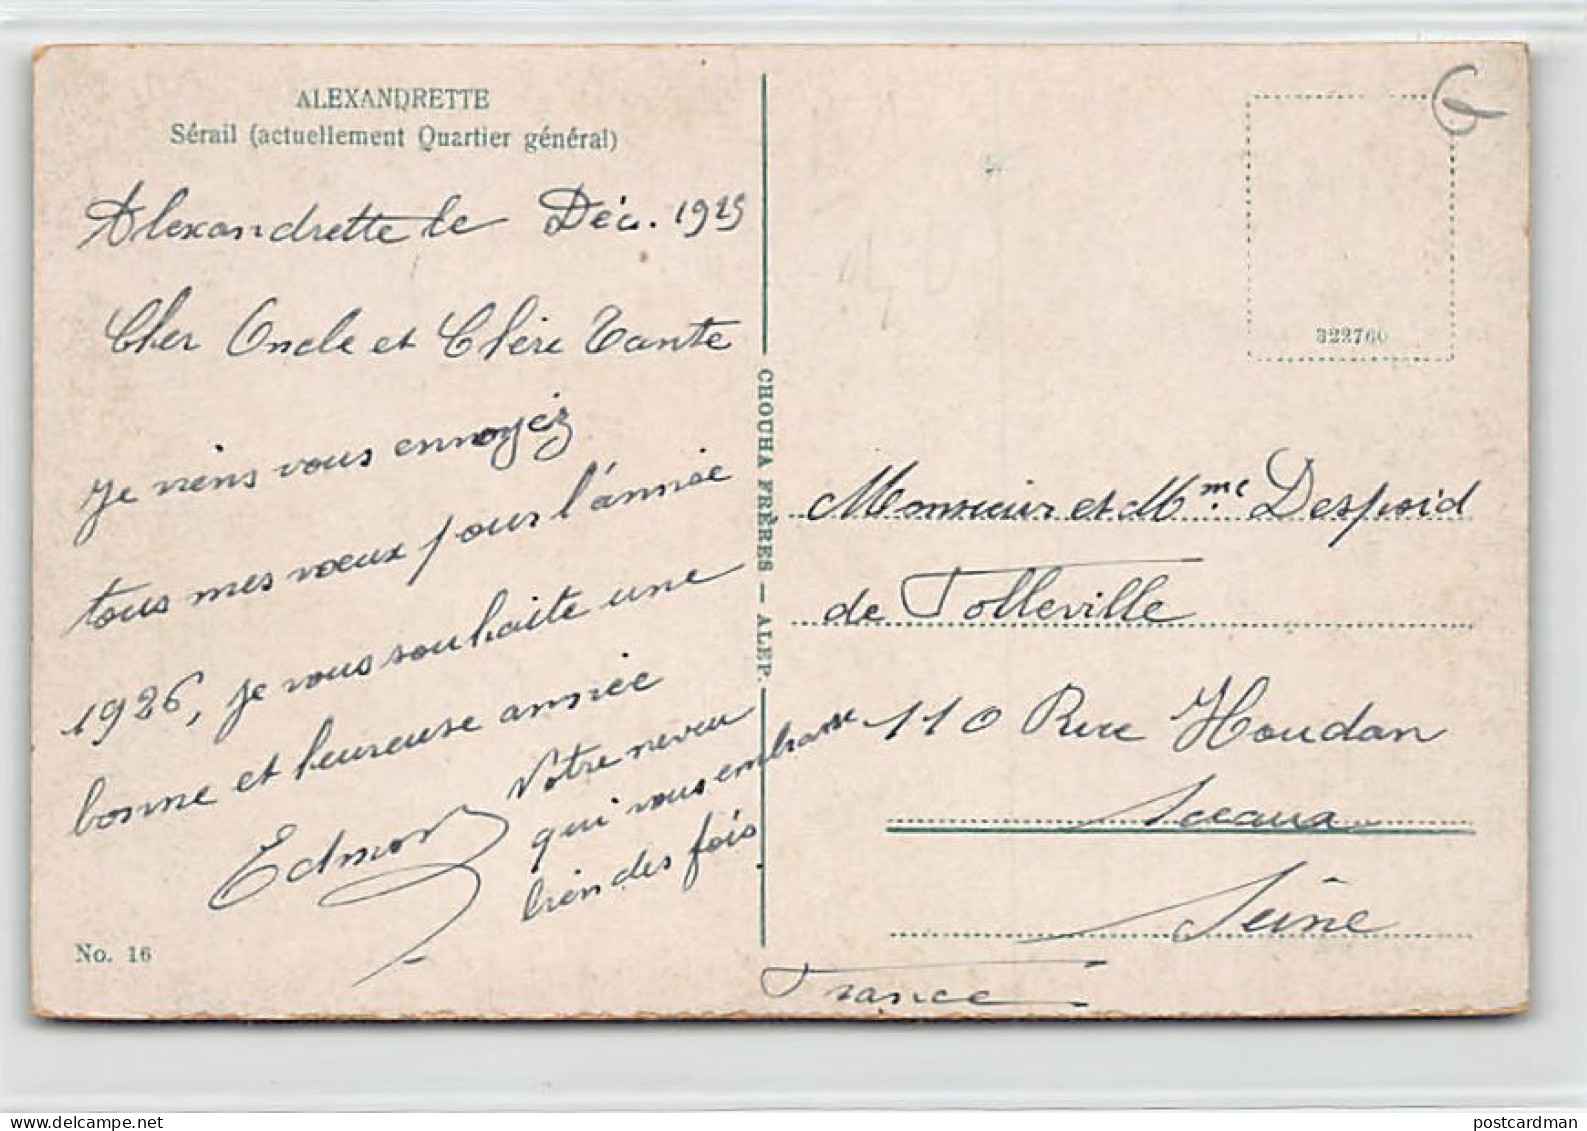 ALEXANDRETTE
Sérail (actuellement Quartier général)
Alexandrette le Déc. 1925
Cher Oncle et Chère Tante
Je viens vous envoyéz
tous mes voeux pour l'année
1926, je vous souhaite une
bonne et heureuse année
Votre neveu
qui vous embrasse
bien des fois
Edmond
No. 16
CHOUHA FRÈRES — ALEP.
322760
Monsieur et Mme. Despoid
de Tolleville
110 Rue Houdan
Sceaux
Seine
France
www.delcampe.net
postcardman